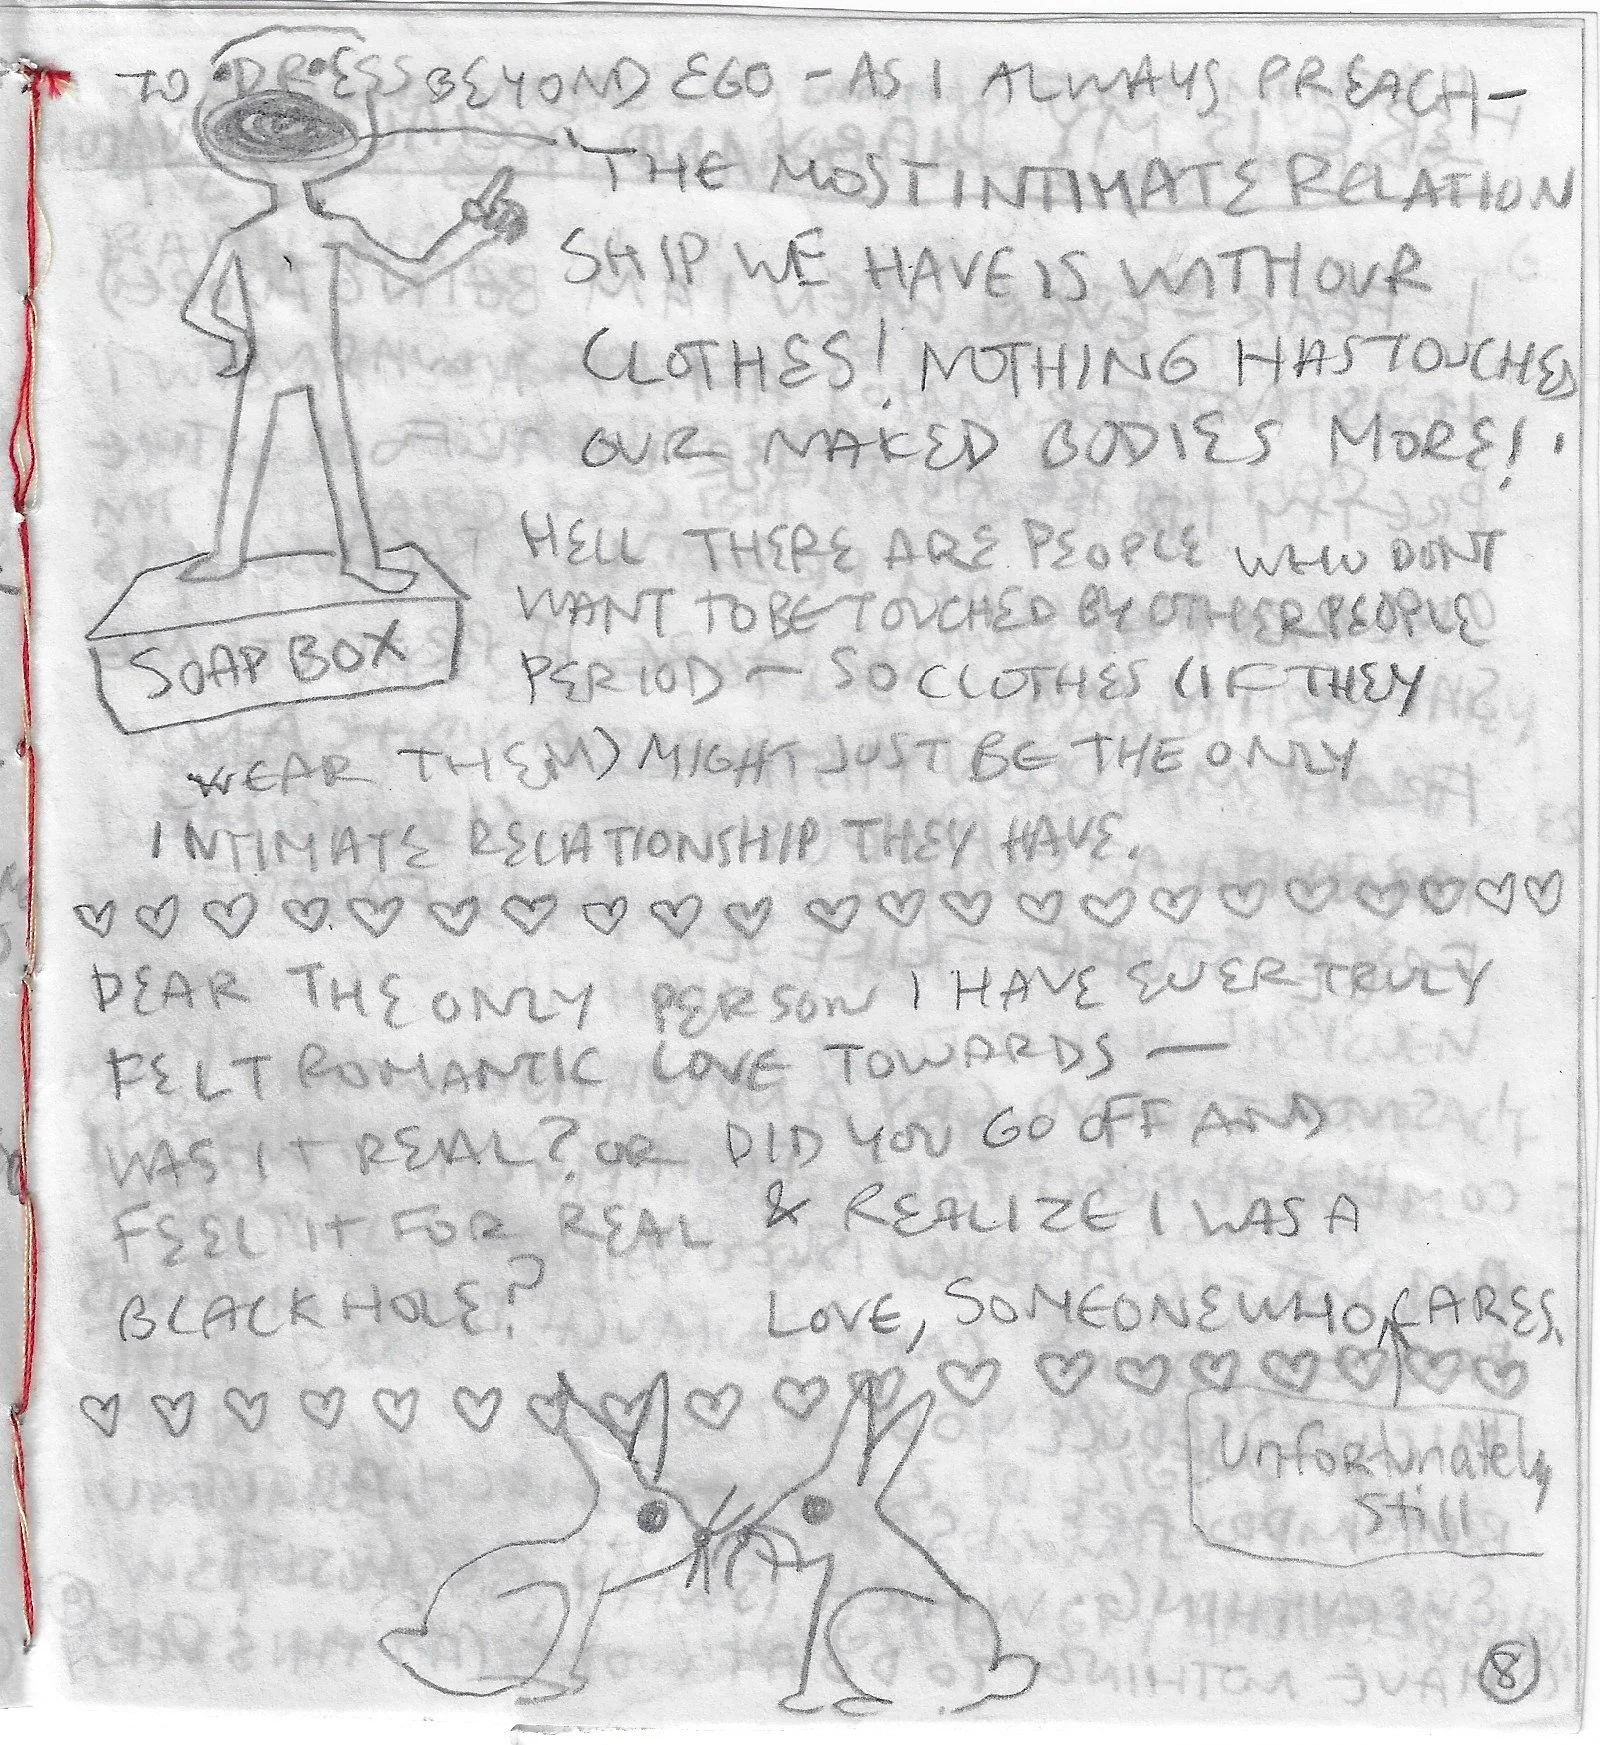 TO DRESS BEYOND EGO - AS I ALWAYS PREACH -
THE MOST INTIMATE RELATION
SHIP WE HAVE IS WITH OUR
CLOTHES! NOTHING HAS TOUCHED
OUR NAKED BODIES MORE!
HELL THERE ARE PEOPLE WHO DONT
WANT TO BE TOUCHED BY OTHER PEOPLE
PERIOD - SO CLOTHES (IF THEY
SOAP BOX
WEAR THEM) MIGHT JUST BE THE ONLY
INTIMATE RELATIONSHIP THEY HAVE.
DEAR THE ONLY PERSON I HAVE EVER TRULY
FELT ROMANTIC LOVE TOWARDS —
WAS IT REAL? OR DID YOU GO OFF AND
FEEL IT FOR REAL & REALIZE I WAS A
BLACK HOLE?
LOVE, SOMEONE WHO CARES.
Unfortunately
Still
8